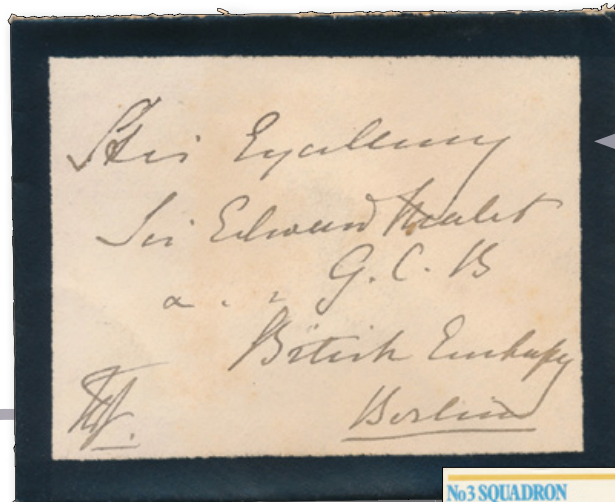 His Excellency
Sir Edward Malet
G.C.B
British Embassy
Berlin
No3 SQUADRON